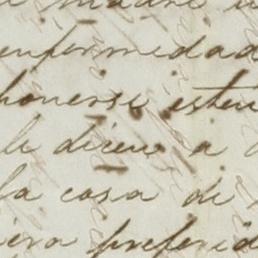 madre
enfermedad
ponerse esten
le dicen a
la casa de
era preferid